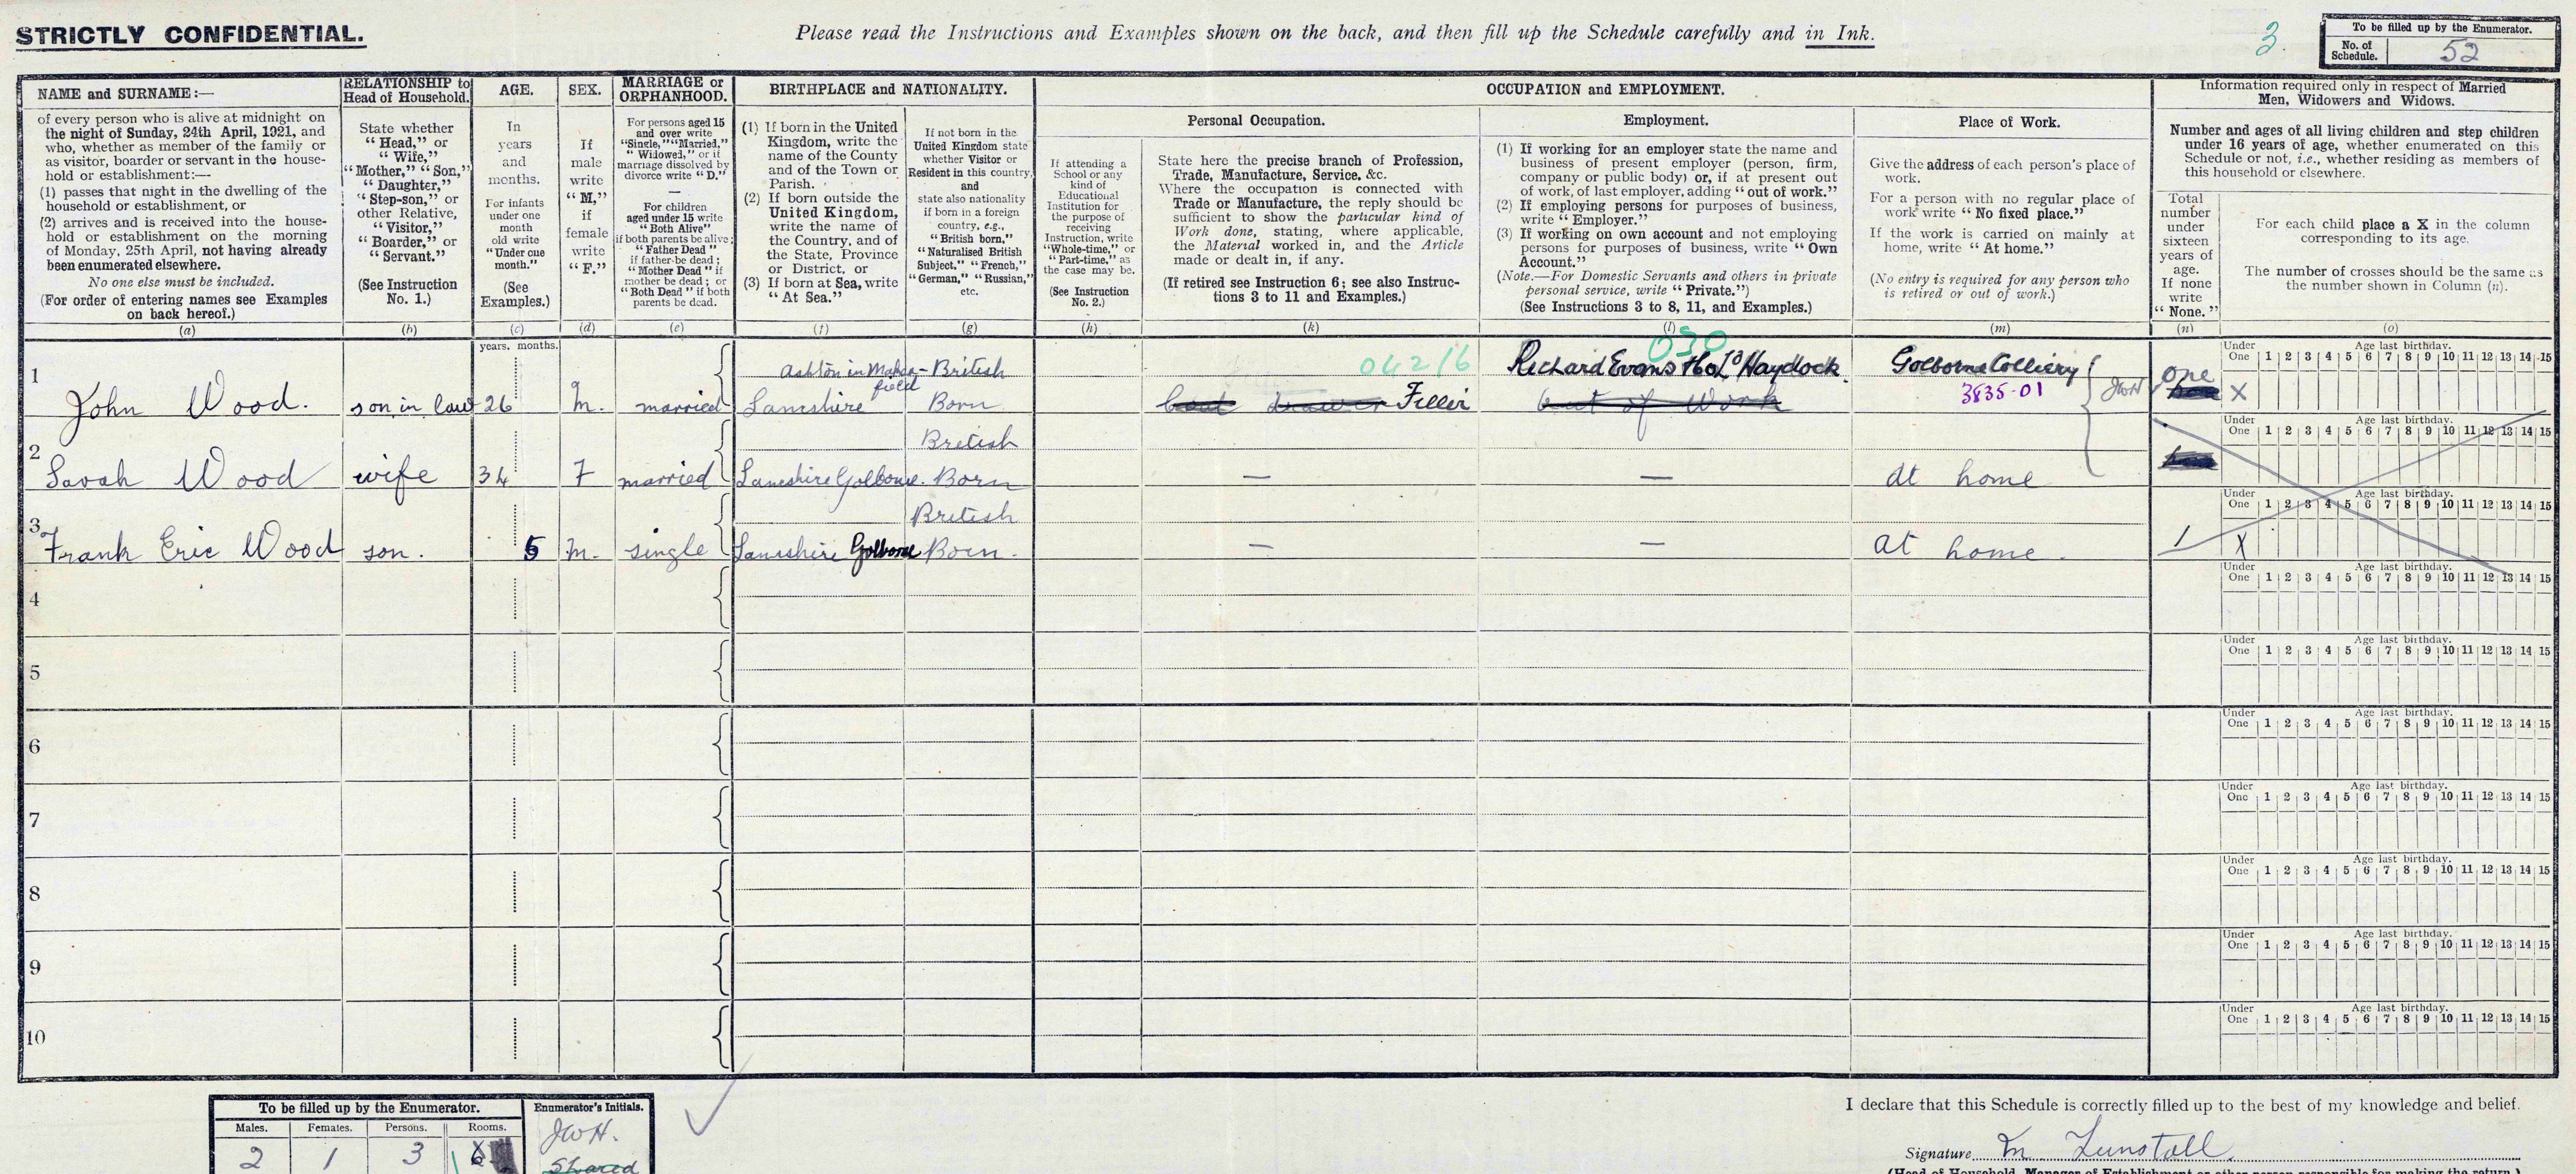 STRICTLY CONFIDENTIAL.
Please read the Instructions and Examples shown on the back, and then fill up the Schedule carefully and in Ink.
3.
To be filled up by the Enumerator.
No. of Schedule. 52
NAME and SURNAME:—
of every person who is alive at midnight on
the night of Sunday, 24th April, 1921, and
who, whether as member of the family or
as visitor, boarder or servant in the house-
hold or establishment:—
(1) passes that night in the dwelling of the
household or establishment, or
(2) arrives and is received into the house-
hold or establishment on the morning
of Monday, 25th April, not having already
been enumerated elsewhere.
No one else must be included.
(For order of entering names see Examples
on back hereof.)
(a)
RELATIONSHIP to
Head of Household.
State whether
"Head," or
"Wife,"
"Mother," "Son,"
"Daughter,"
"Step-son," or
other Relative,
"Visitor,"
"Boarder," or
"Servant."
(See Instruction
No. 1.)
(b)
AGE.
In
years
and
months.
For infants
under one
month
old write
"Under one
month."
(See
Examples.)
(c)
SEX.
If
male
write
"M,"
if
female
write
"F."
(d)
MARRIAGE or
ORPHANHOOD.
For persons aged 15
and over write
"Single," "Married,"
"Widowed," or if
marriage dissolved by
divorce write "D."
—
For children
aged under 15 write
"Both Alive"
if both parents be alive;
"Father Dead"
if father be dead;
"Mother Dead" if
mother be dead; or
"Both Dead" if both
parents be dead.
(e)
BIRTHPLACE and NATIONALITY.
(1) If born in the United
Kingdom, write the
name of the County
and of the Town or
Parish.
(2) If born outside the
United Kingdom,
write the name of
the Country, and of
the State, Province
or District, or
(3) If born at Sea, write
"At Sea."
(f)
If not born in the
United Kingdom state
whether Visitor or
Resident in this country,
and
state also nationality
if born in a foreign
country, e.g.,
"British born,"
"Naturalised British
Subject," "French,"
"German," "Russian,"
etc.
(g)
OCCUPATION and EMPLOYMENT.
If attending a
School or any
kind of
Educational
Institution for
the purpose of
receiving
Instruction, write
"Whole-time," or
"Part-time," as
the case may be.
(See Instruction
No. 2.)
(h)
Personal Occupation.
State here the precise branch of Profession,
Trade, Manufacture, Service, &c.
Where the occupation is connected with
Trade or Manufacture, the reply should be
sufficient to show the particular kind of
Work done, stating, where applicable,
the Material worked in, and the Article
made or dealt in, if any.
(If retired see Instruction 6; see also Instruc-
tions 3 to 11 and Examples.)
(k)
Employment.
(1) If working for an employer state the name and
business of present employer (person, firm,
company or public body) or, if at present out
of work, of last employer, adding "out of work."
(2) If employing persons for purposes of business,
write "Employer."
(3) If working on own account and not employing
persons for purposes of business, write "Own
Account."
(Note.—For Domestic Servants and others in private
personal service, write "Private.")
(See Instructions 3 to 8, 11, and Examples.)
(l)
Place of Work.
Give the address of each person's place of
work.
For a person with no regular place of
work write "No fixed place."
If the work is carried on mainly at
home, write "At home."
(No entry is required for any person who
is retired or out of work.)
(m)
Information required only in respect of Married
Men, Widowers and Widows.
Number and ages of all living children and step children
under 16 years of age, whether enumerated on this
Schedule or not, i.e., whether residing as members of
this household or elsewhere.
Total
number
under
sixteen
years of
age.
If none
write
"None."
(n)
For each child place a X in the column
corresponding to its age.
The number of crosses should be the same as
the number shown in Column (n).
(o)
years. months.
Under One Age last birthday. 1 2 3 4 5 6 7 8 9 10 11 12 13 14 15
1 John Wood. son in law 26 M. married Ashton in Maker-field Lancshire British Born 04216 boat drawer Filler 030 Richard Evans & Co Ld Haydock out of Work Golborne Colliery 3835-01 JWH one X
Under One Age last birthday. 1 2 3 4 5 6 7 8 9 10 11 12 13 14 15
2 Sarah Wood wife 34 F married Lancshire Golborne. British Born — — at home
Under One Age last birthday. 1 2 3 4 5 6 7 8 9 10 11 12 13 14 15
3 Frank Eric Wood son. 5 M. single Lancshire Golborne British Born. — — at home. 1 X
Under One Age last birthday. 1 2 3 4 5 6 7 8 9 10 11 12 13 14 15
4
Under One Age last birthday. 1 2 3 4 5 6 7 8 9 10 11 12 13 14 15
5
Under One Age last birthday. 1 2 3 4 5 6 7 8 9 10 11 12 13 14 15
6
Under One Age last birthday. 1 2 3 4 5 6 7 8 9 10 11 12 13 14 15
7
Under One Age last birthday. 1 2 3 4 5 6 7 8 9 10 11 12 13 14 15
8
Under One Age last birthday. 1 2 3 4 5 6 7 8 9 10 11 12 13 14 15
9
Under One Age last birthday. 1 2 3 4 5 6 7 8 9 10 11 12 13 14 15
10
To be filled up by the Enumerator.
Males. Females. Persons. Rooms.
2 1 3
Enumerator's Initials.
JWH.
Shared
I declare that this Schedule is correctly filled up to the best of my knowledge and belief.
Signature M Tunstall
(Head of Household, Manager of Establishment or other person responsible for making the return.)